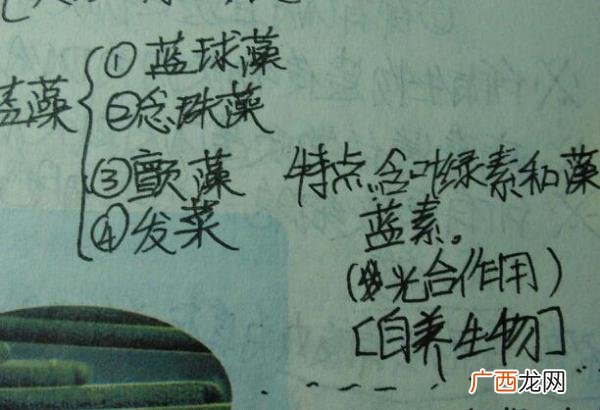 蓝藻
①蓝球藻
②念珠藻
③颤藻
④发菜
特点含叶绿素和藻
蓝素。
(光合作用)
[自养生物]
广西龙网